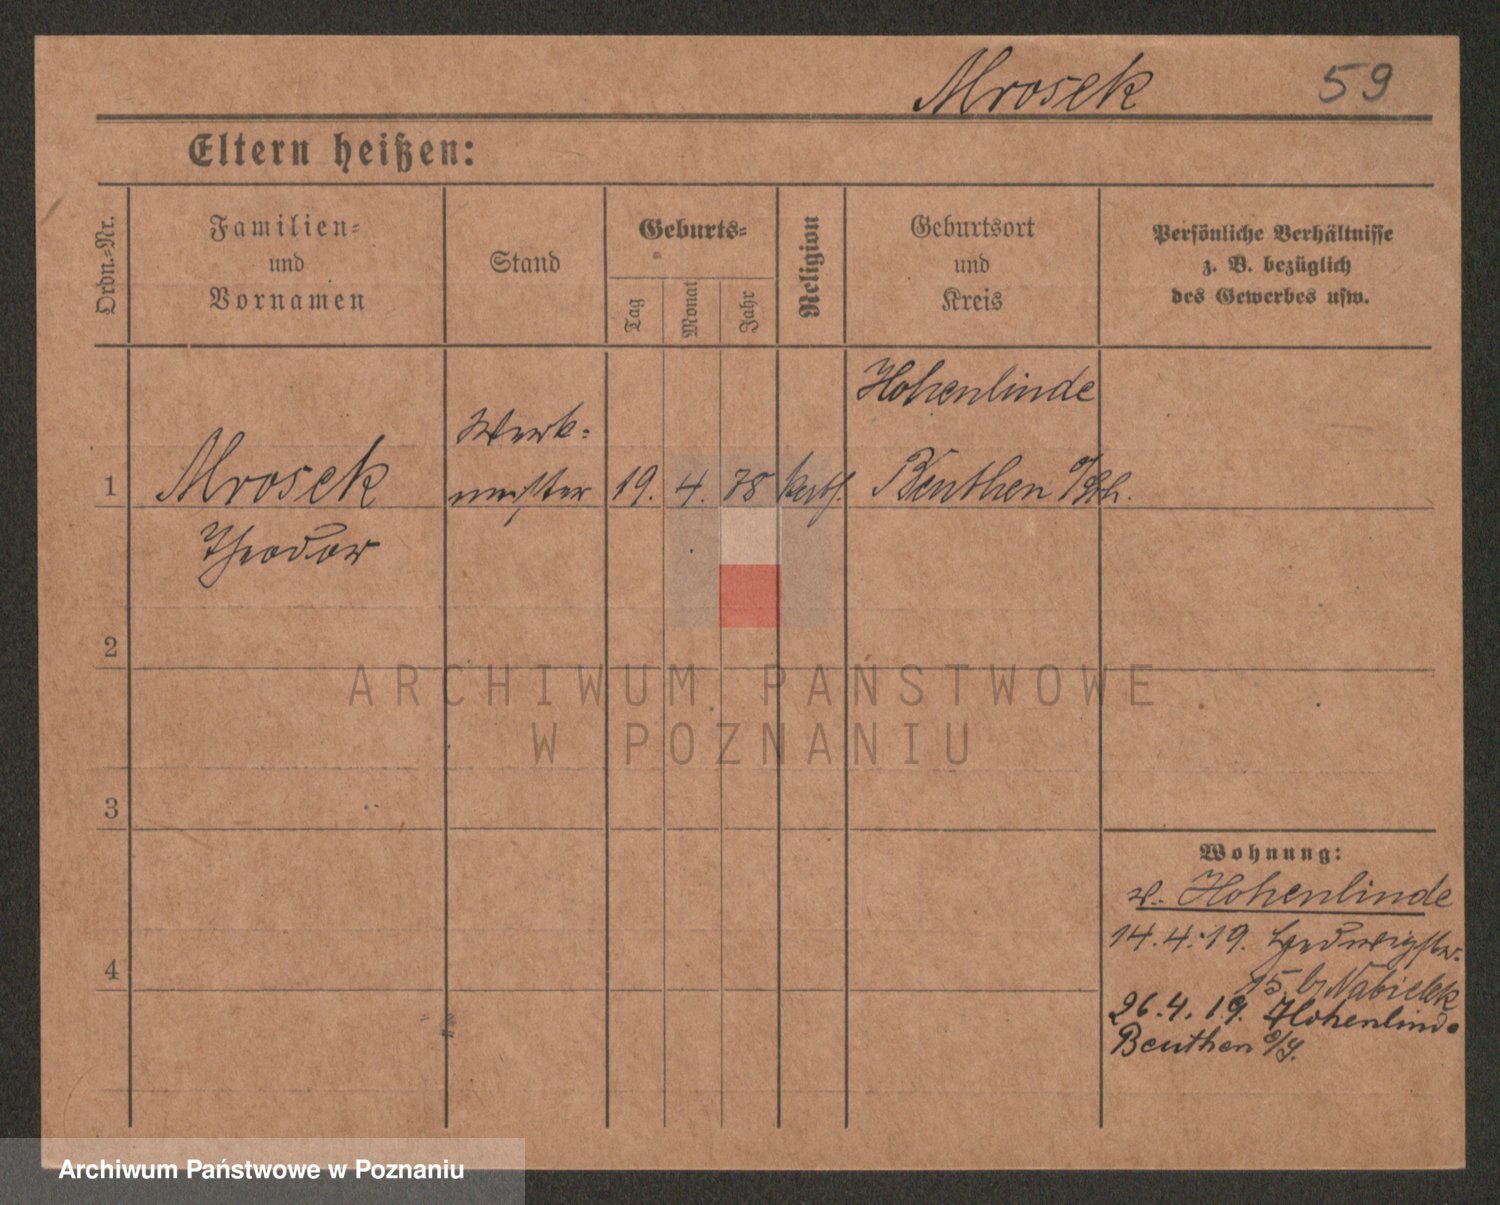 Mrosek 59
Eltern heißen:
Ordn.-Nr.
Familien-
und
Vornamen
Stand
Geburts-
Tag
Monat
Jahr
Religion
Geburtsort
und
Kreis
Persönliche Verhältnisse
z. B. bezüglich
des Gewerbes usw.
Hohenlinde
Werk-
1 Mrosek meister 19. 4. 78 kath. Beuthen
Theodor
2
ARCHIWUM PAŃSTWOWE
W POZNANIU
3
Wohnung:
v. Hohenlinde
14.4.19. Hedwigstr.
15 b/ Nabielek
4
26.4.19. Hohenlinde
Beuthen o/S.
Archiwum Państwowe w Poznaniu